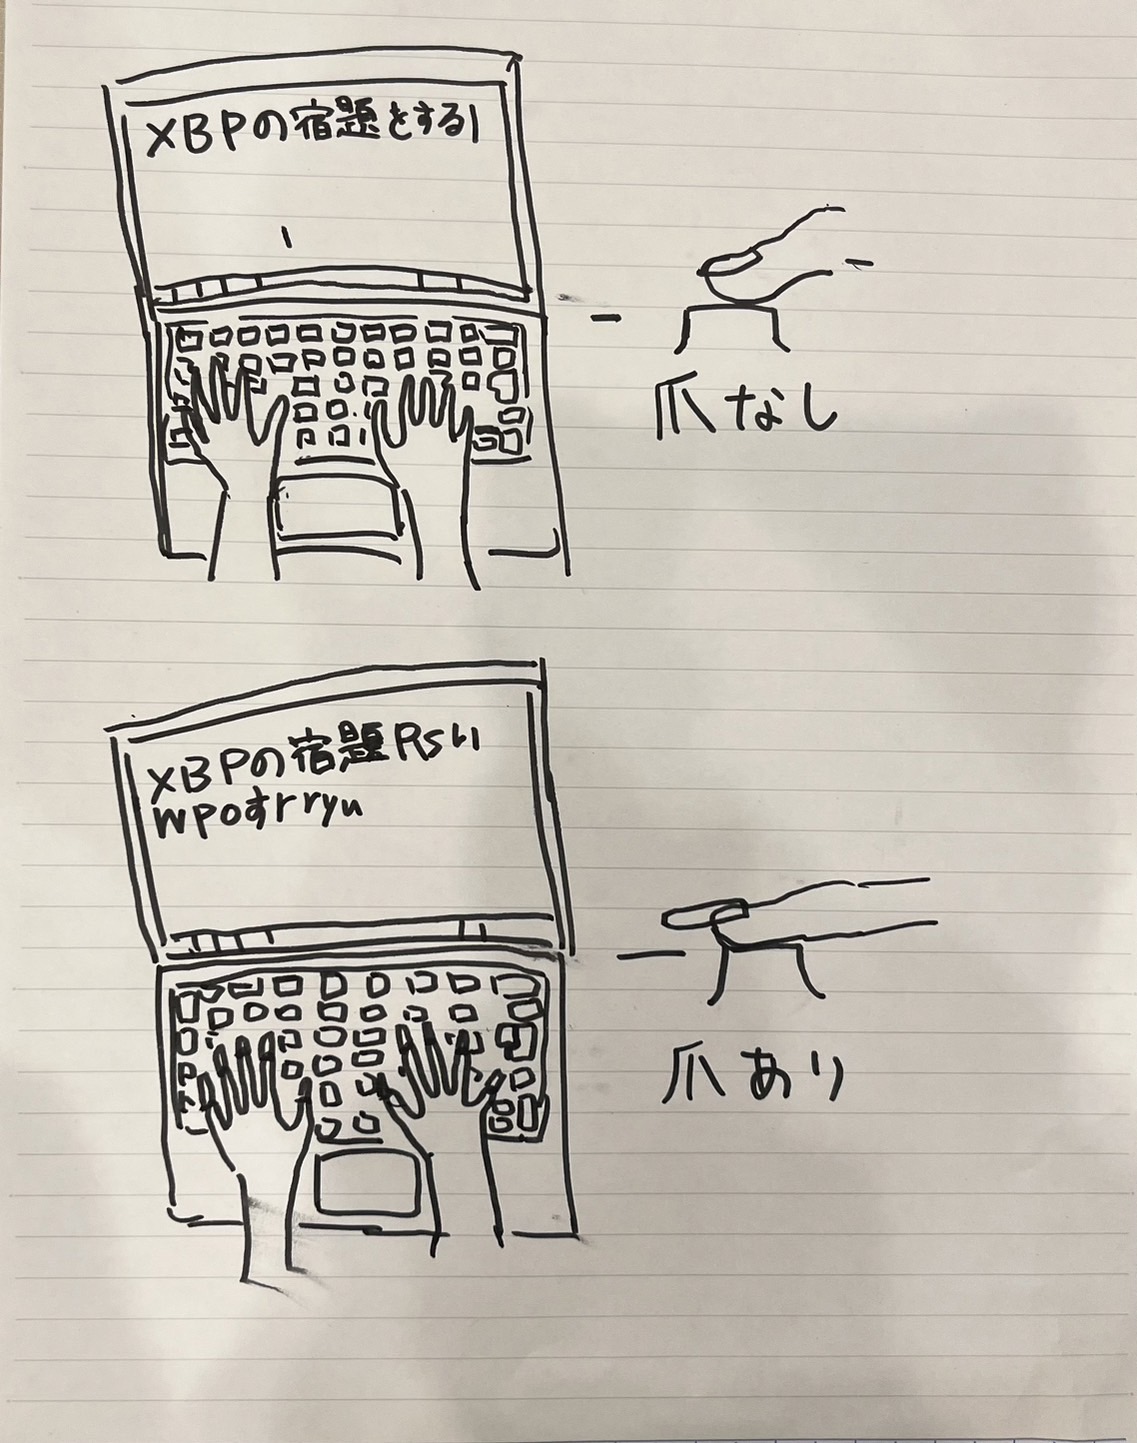 XBPの宿題をする|
爪なし
XBPの宿題Rsい
wpoすrryu
爪あり